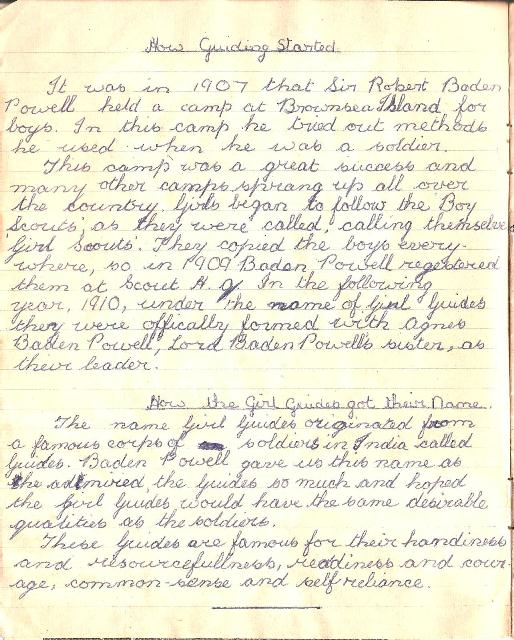 How Guiding Started
It was in 1907 that Sir Robert Baden
Powell held a camp at Brownsea Island for
boys. In this camp he tried out methods
he used when he was a soldier.
This camp was a great success and
many other camps sprang up all over
the country. Girls began to follow the Boy
Scouts, as they were called, calling themselves
Girl Scouts. They copied the boys every-
where, so in 1909 Baden Powell regestered
them at Scout H.Q. In the following
year, 1910, under the name of Girl Guides
they were offically formed with Agnes
Baden Powell, Lord Baden Powell's sister, as
their leader.
How the Girl Guides got their Name.
The name Girl Guides originated from
a famous corps of soldiers in India called
Guides. Baden Powell gave us this name as
he admired the Guides so much and hoped
the Girl Guides would have the same desirable
qualities as the soldiers.
These Guides are famous for their handiness
and resourcefullness, readiness and cour-
age, common-sense and self reliance.